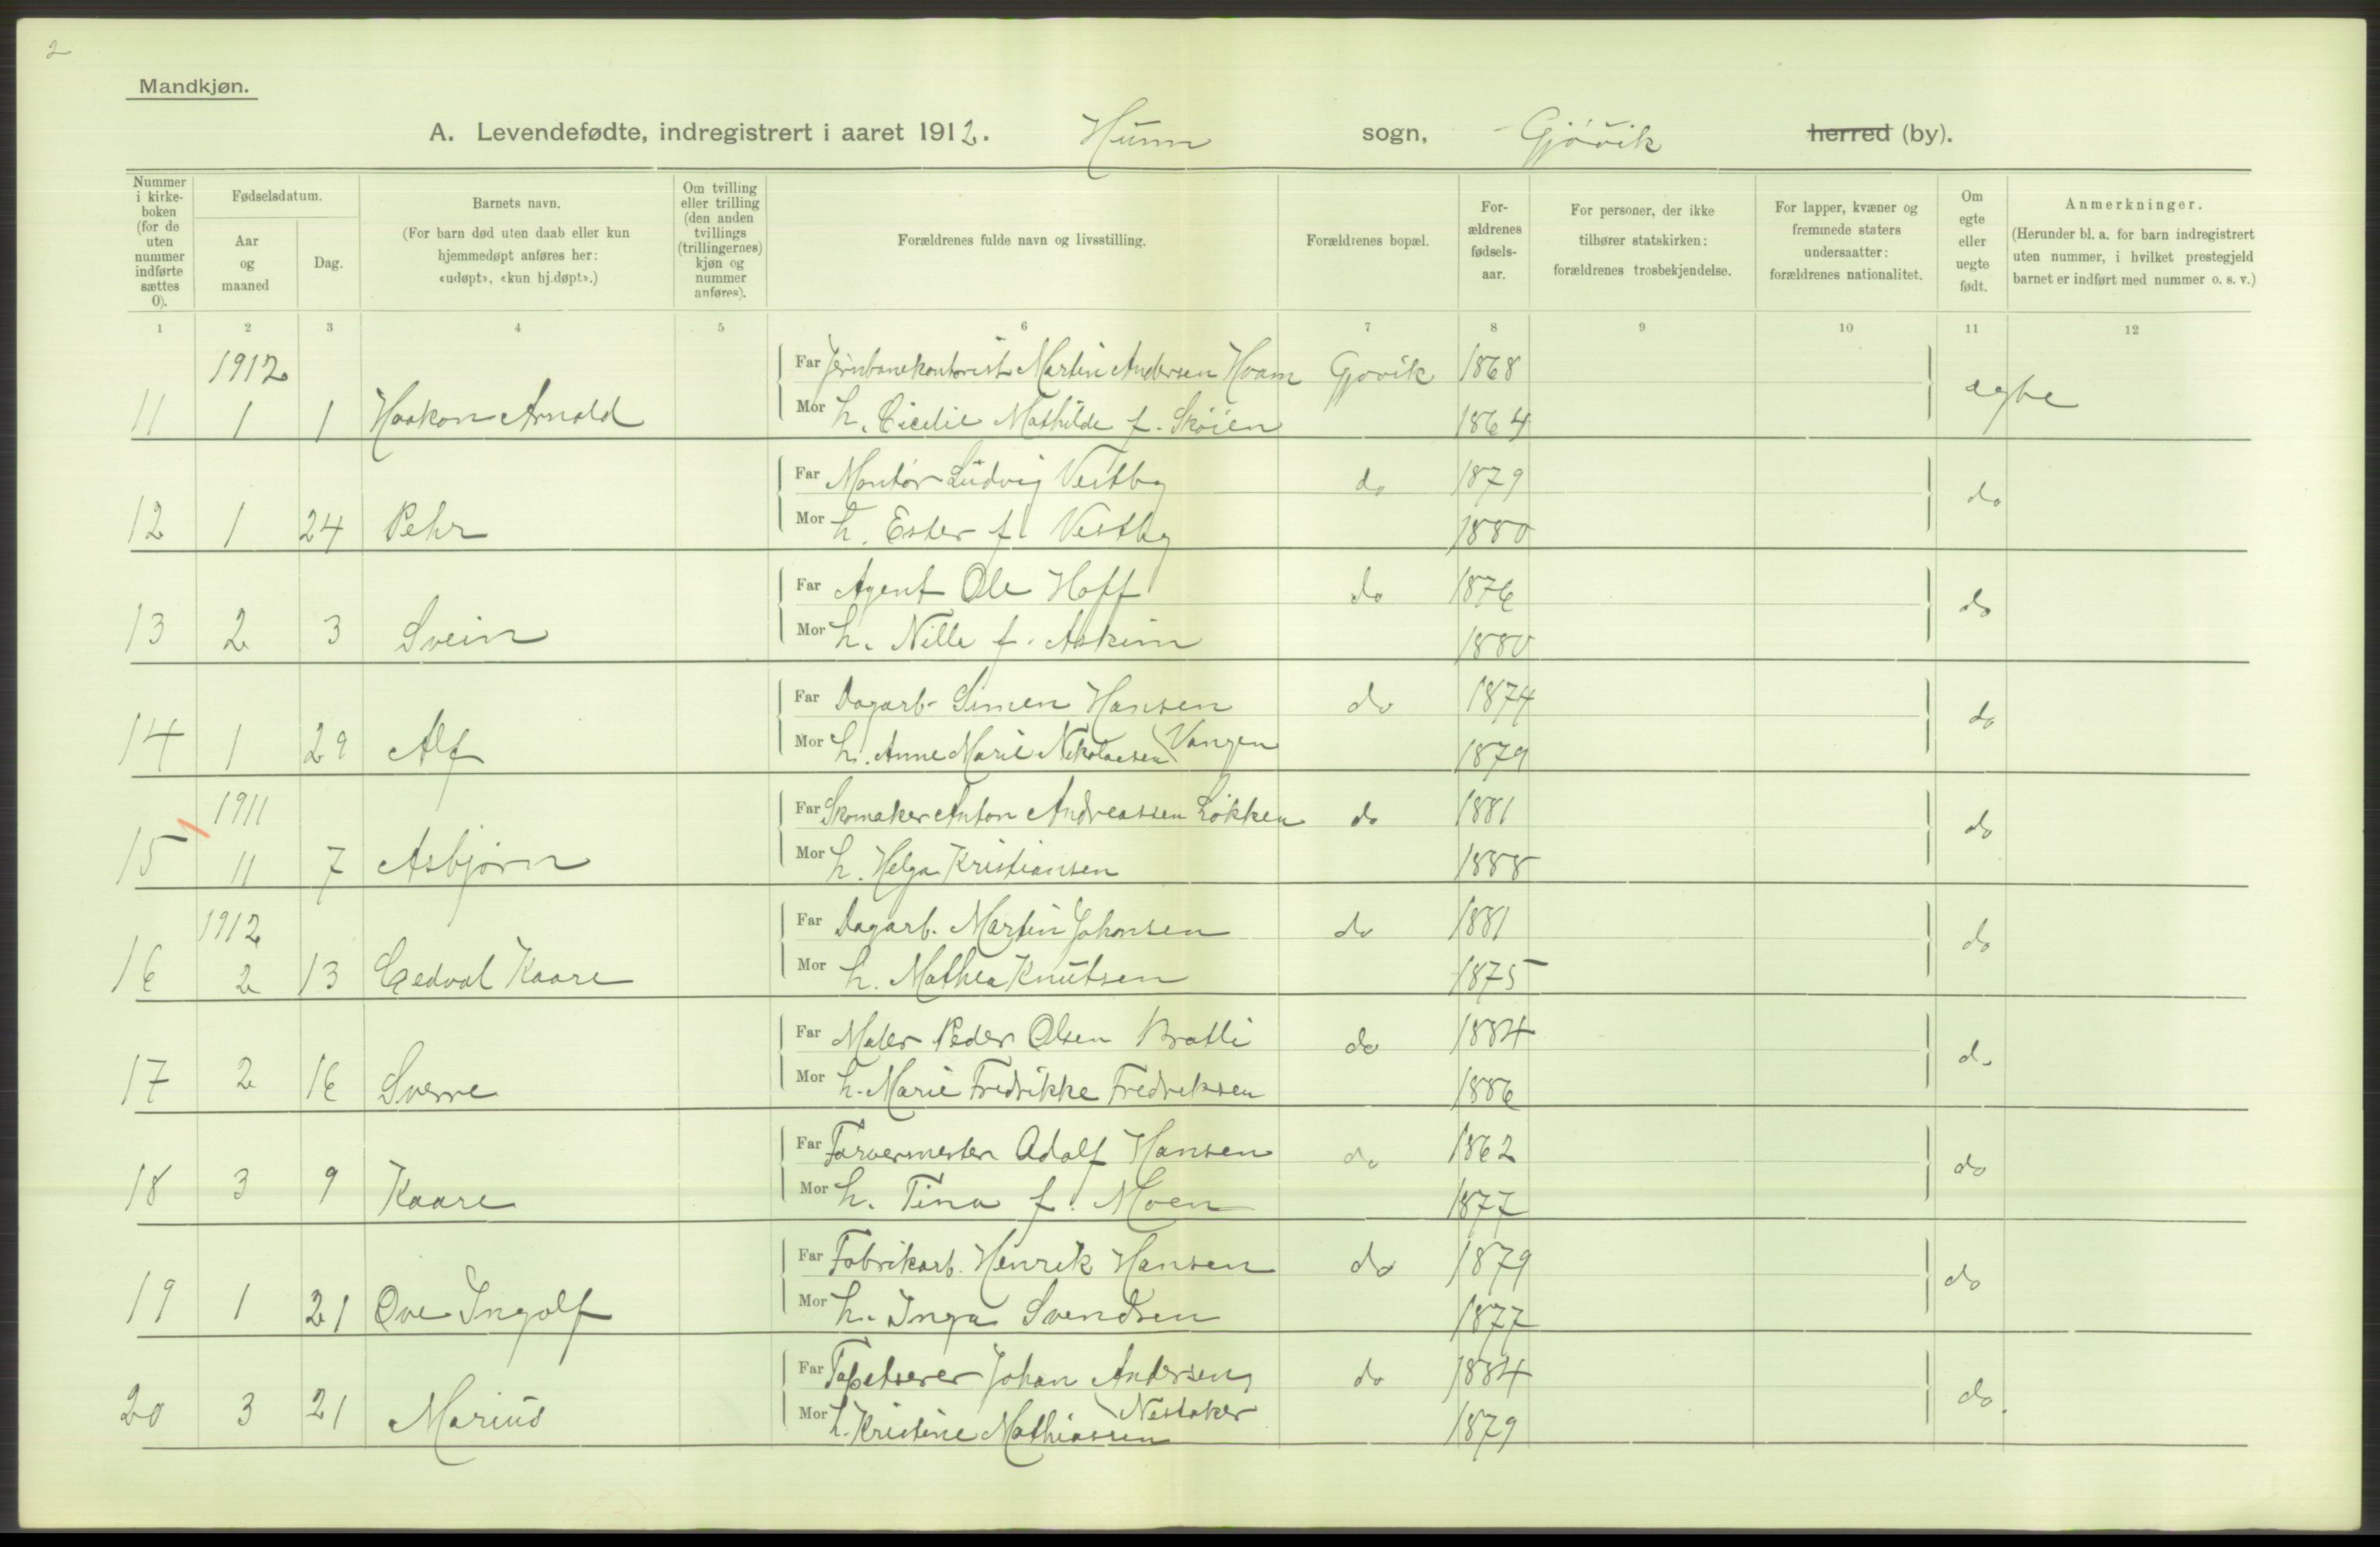 2
Mandkjøn.
A. Levendefødte, indregistrert i aaret 1912. Hunn sogn, Gjøvik herred (by).
Nummer i kirke-boken (for de uten nummer indførte sættes 0).
Fødselsdatum.
Aar og maaned
Dag.
Barnets navn.
(For barn død uten daab eller kun hjemmedøpt anføres her: «udøpt», «kun hj.døpt».)
Om tvilling eller trilling (den anden tvillings (trillingernes) kjøn og nummer anføres).
Forældrenes fulde navn og livsstilling.
Forældrenes bopæl.
For-ældrenes fødsels-aar.
For personer, der ikke tilhører statskirken: forældrenes trosbekjendelse.
For lapper, kvæner og fremmede staters undersaatter: forældrenes nationalitet.
Om egte eller uegte født.
Anmerkninger.
(Herunder bl. a. for barn indregistrert uten nummer, i hvilket prestegjeld barnet er indført med nummer o. s. v.)
1 2 3 4 5 6 7 8 9 10 11 12
1912
Far Jernbanekontorist Martin Andersen Hvam Gjøvik 1868
11 1 1 Haakon Arnold egte
Mor h. Cicilie Mathilde f. Skøien 1864
Far Montør Ludvig Vestby do 1879
12 1 24 Pehr do
Mor h. Ester f. Vestby 1880
Far Agent Ole Hoff do 1876
13 2 3 Svein do
Mor h. Nille f. Askim 1880
Far Dagarb. Simen Hansen do 1874
14 1 29 Alf do
Mor h. Anne Marie Nikolaesen Vangen 1879
1911
Far Skomaker Anton Andreassen Løkken do 1881
15 11 7 Asbjørn do
Mor h. Helga Kristiansen 1888
1912
Far Dagarb. Martin Johansen do 1881
16 2 13 Kaare do
Mor h. Mathea Knutsen 1875
Far Maler Peder Olsen Bratli do 1884
17 2 16 Sverre do
Mor h. Marie Fredrikke Fredriksen 1886
Far Farvermester Adolf Hansen do 1862
18 3 9 Kaare do
Mor h. Tina f. Moen 1877
Far Fabrikarb. Henrik Hansen do 1879
19 1 21 Ove Ingolf do
Mor h. Inga Svendsen 1877
Far Tapetserer Johan Andersen do 1884
Nestaker
20 3 21 Marius do.
Mor h. Kristine Mathiassen 1879